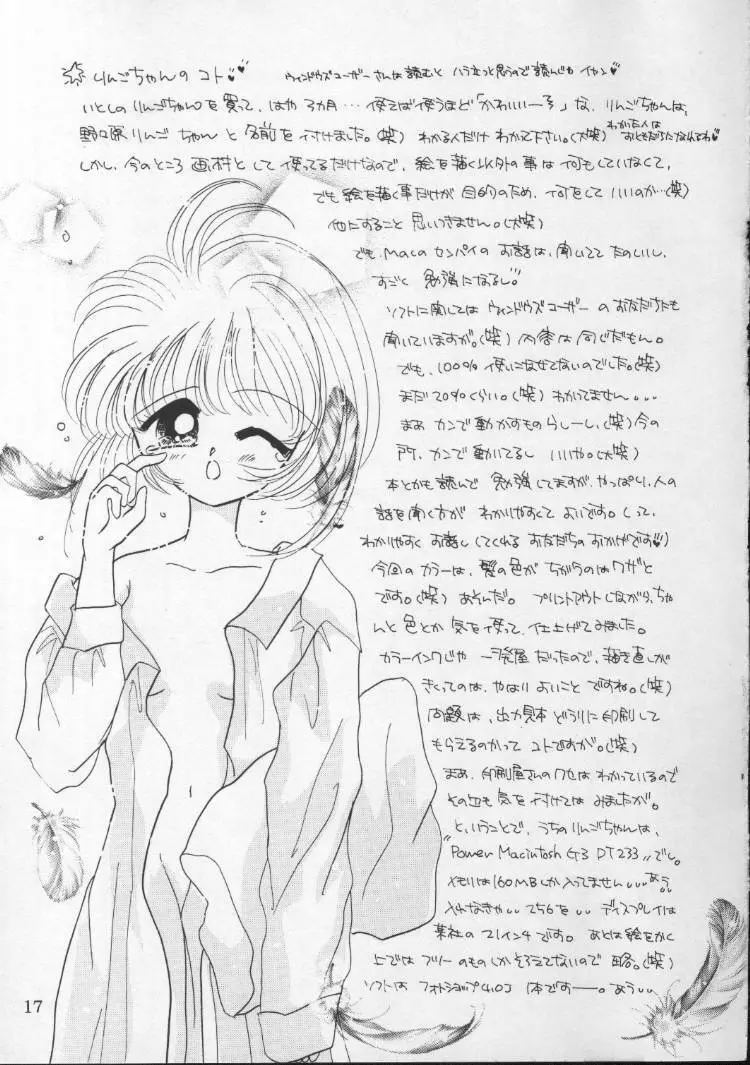 りんごちゃんの コト
ウィンドウズユーザーさんは読むと ハラ立つと思うので 読んじゃ イヤン
いとしの りんごちゃんを 買って、はや 3カ月… 使えば使うほど「かわいいーっ」な、りんごちゃんは、
野々原りんご ちゃん と 名前 を 付けました。(笑) わかる人だけ わかって下さい。(大笑) わかった人は おともだちになれてね
しかし、今のところ 画材 として 使ってるだけなので、絵を描く以外の事は 何もしていなくて、
でも 絵を描く事だけが 目的のため、何をして いいのか…(笑)
他にすること 思いつきません。(大笑)
でも、Macの センパイの お話は、聞いてて たのしいし、
すごく 勉強になるし。
ソフトに関しては ウィンドウズユーザー の お友だちにも
聞いていますが。(笑) 内容は同じだもん。
でも、100% 使いこなせてないのでした。(笑)
まだ 20%くらい。(笑) わかってません…
まあ カンで 動かすもの らしーし、(笑) 今の
所、カンで動いてるし いいや。(大笑)
本とかも 読んで 勉強してますが、やっぱり、人の
話を聞く方が わかりやすくて よいです。(って、
わかりやすく お話し してくれる お友だちの おかげです)
今回の カラーは、髪の色が ちがうのは ワザと
です。(笑) あそんだ。 プリントアウト しながら、ちゃ
んと 色とか 気を使って、仕上げてみました。
カラーインクじゃ 一発屋 だったので、描き直しが
きくってのは、やはり よいこと ですね。(笑)
問題は、出力見本 どうりに 印刷して
もらえるのかって コトですが。(笑)
まあ、印刷屋さんの クセは わかっているので
その辺も 気を 付けては みましたが。
と、いうことで、うちの りんごちゃんは、
"Power Macintosh G3 DT233" でし。
メモリは 160MBしか 入ってません… あう。
入れなきゃ… 256を… ディスプレイは
某社の 21インチ です。 あとは 絵をかく
上では フツーのものしか そろえてないので 略。(笑)
ソフトは フォトショップ4.0J 1本ですーー。あう…
17